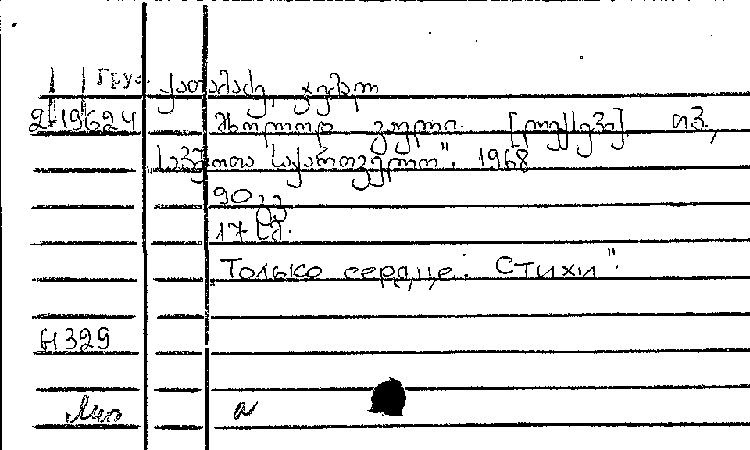 Груз. ქათამაძე, ჯემალ
2-19624 მხოლოდ გული. [ლექსები]. თბ.,
"საბჭოთა საქართველო". 1968
90 გვ.
17 სმ.
"Только сердце. Стихи".
Н329
а